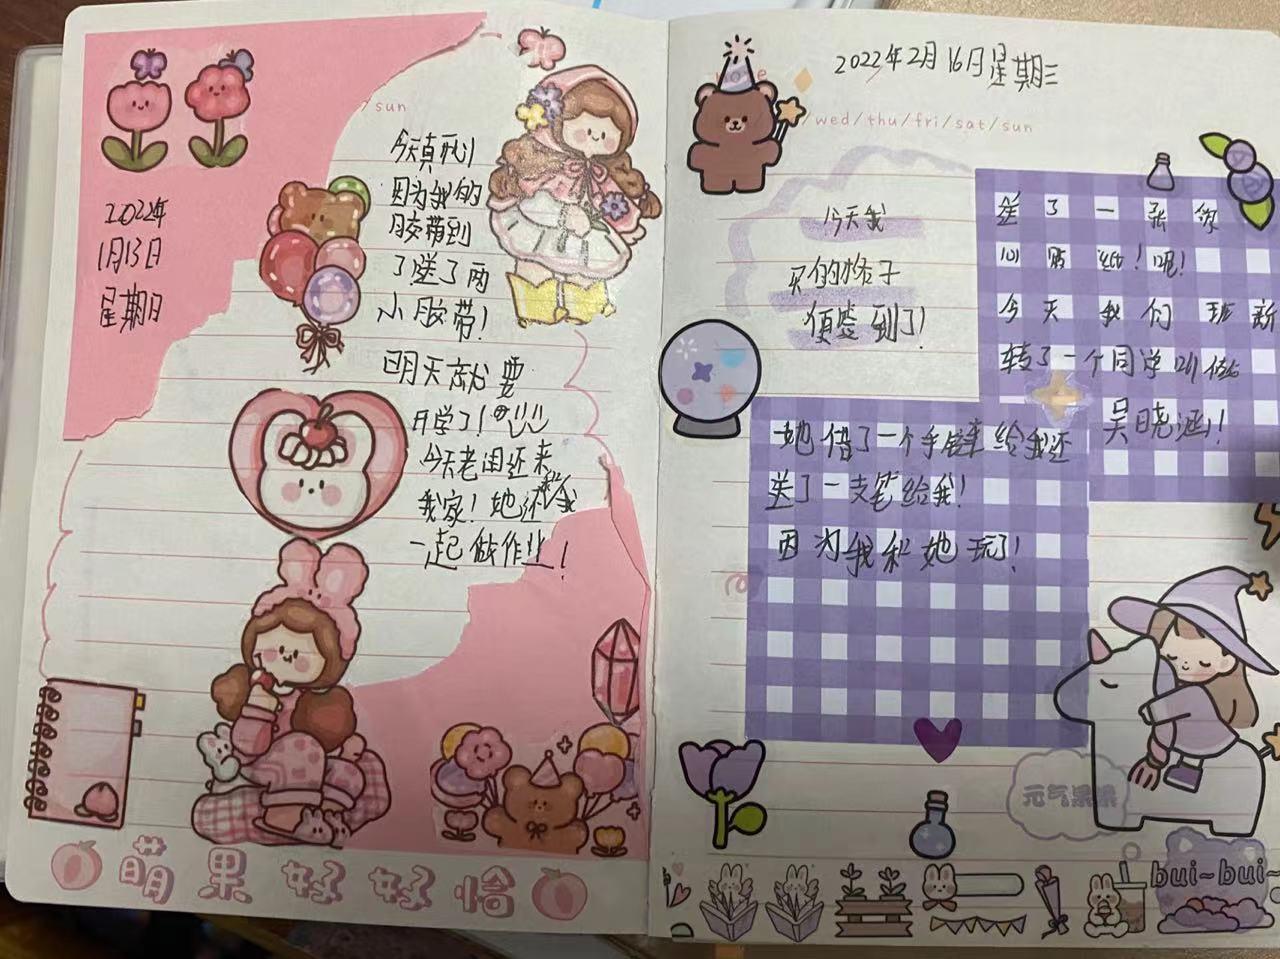 /sun
2022年
1月13日
星期日
今天真开心!
因为我的
胶带到
了送了两
小胶带!
明天就要
开学了!
今天老国还来
我家!她还和我
一起做作业!
萌果好好恰
2022年2月16日星期三
/wed/thu/fri/sat/sun
今天我
买的格子
便签到了!
送了一张你
心贴纸!呢!
今天我们班新
转了一个同学叫做
吴晓涵!
她借了一个手链给我还
送了一支笔给我!
因为我和她玩了!
元气果果
bui~bui~